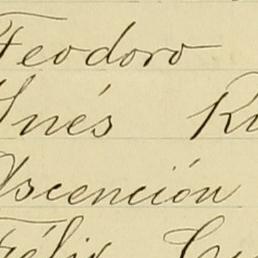 Teodoro
Inés
Ascención
Félix